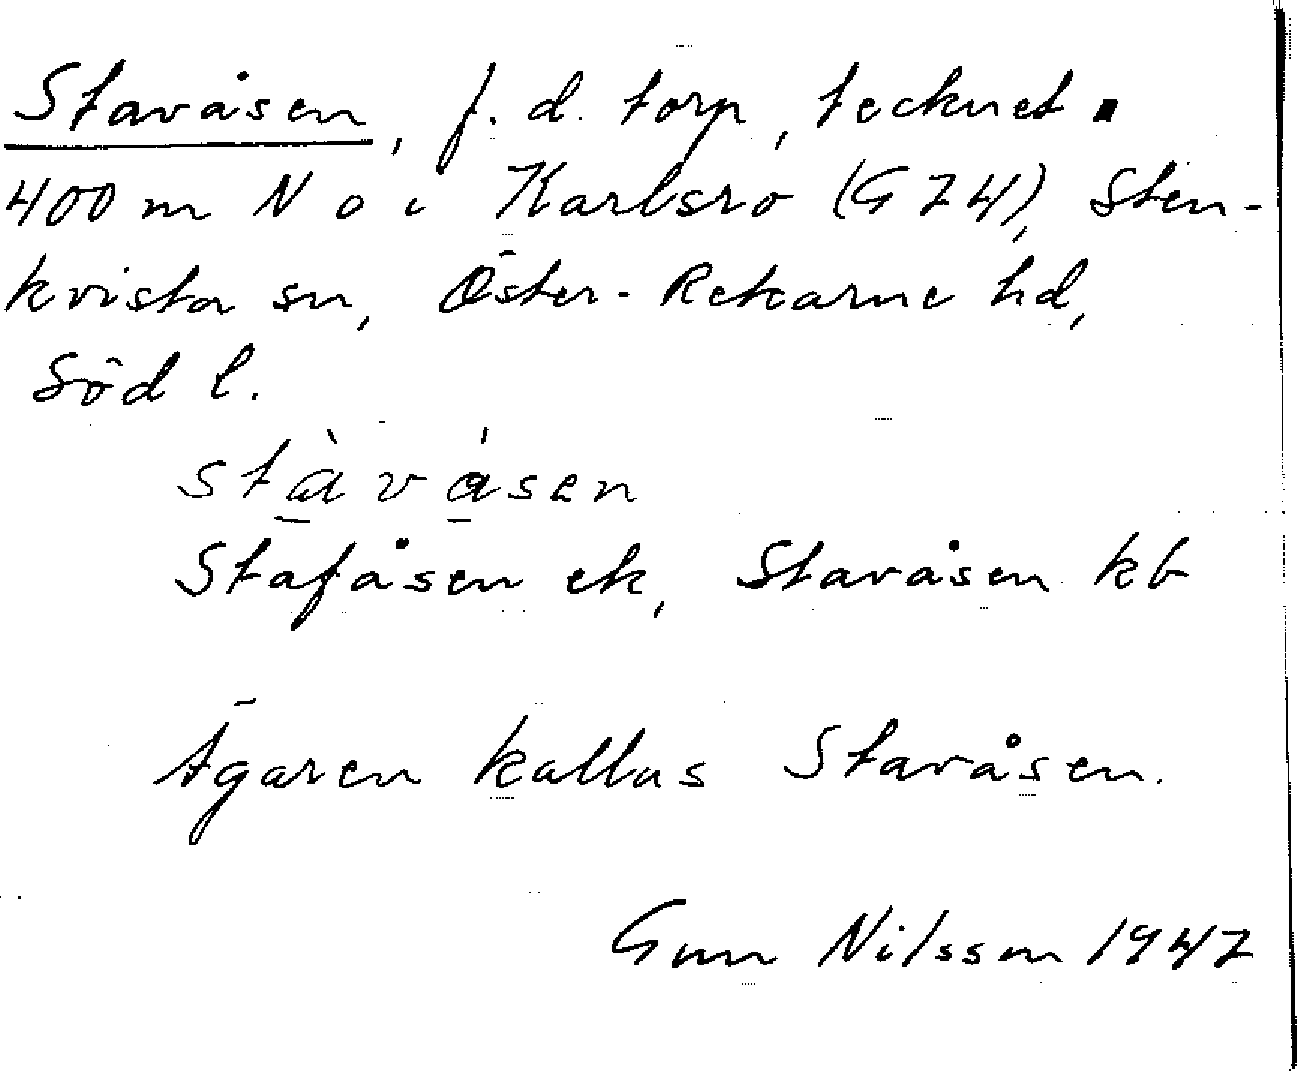 Stavåsen, f. d. torp, tecknet ▪
400 m N o i Karlsro (G 74), Sten-
kvista sn, Öster-Rekarne hd,
Söd l.
stàvásen
Stafåsen ek, Stavåsen kb
Ägaren kallas Stavåsen.
Gun Nilsson 1947